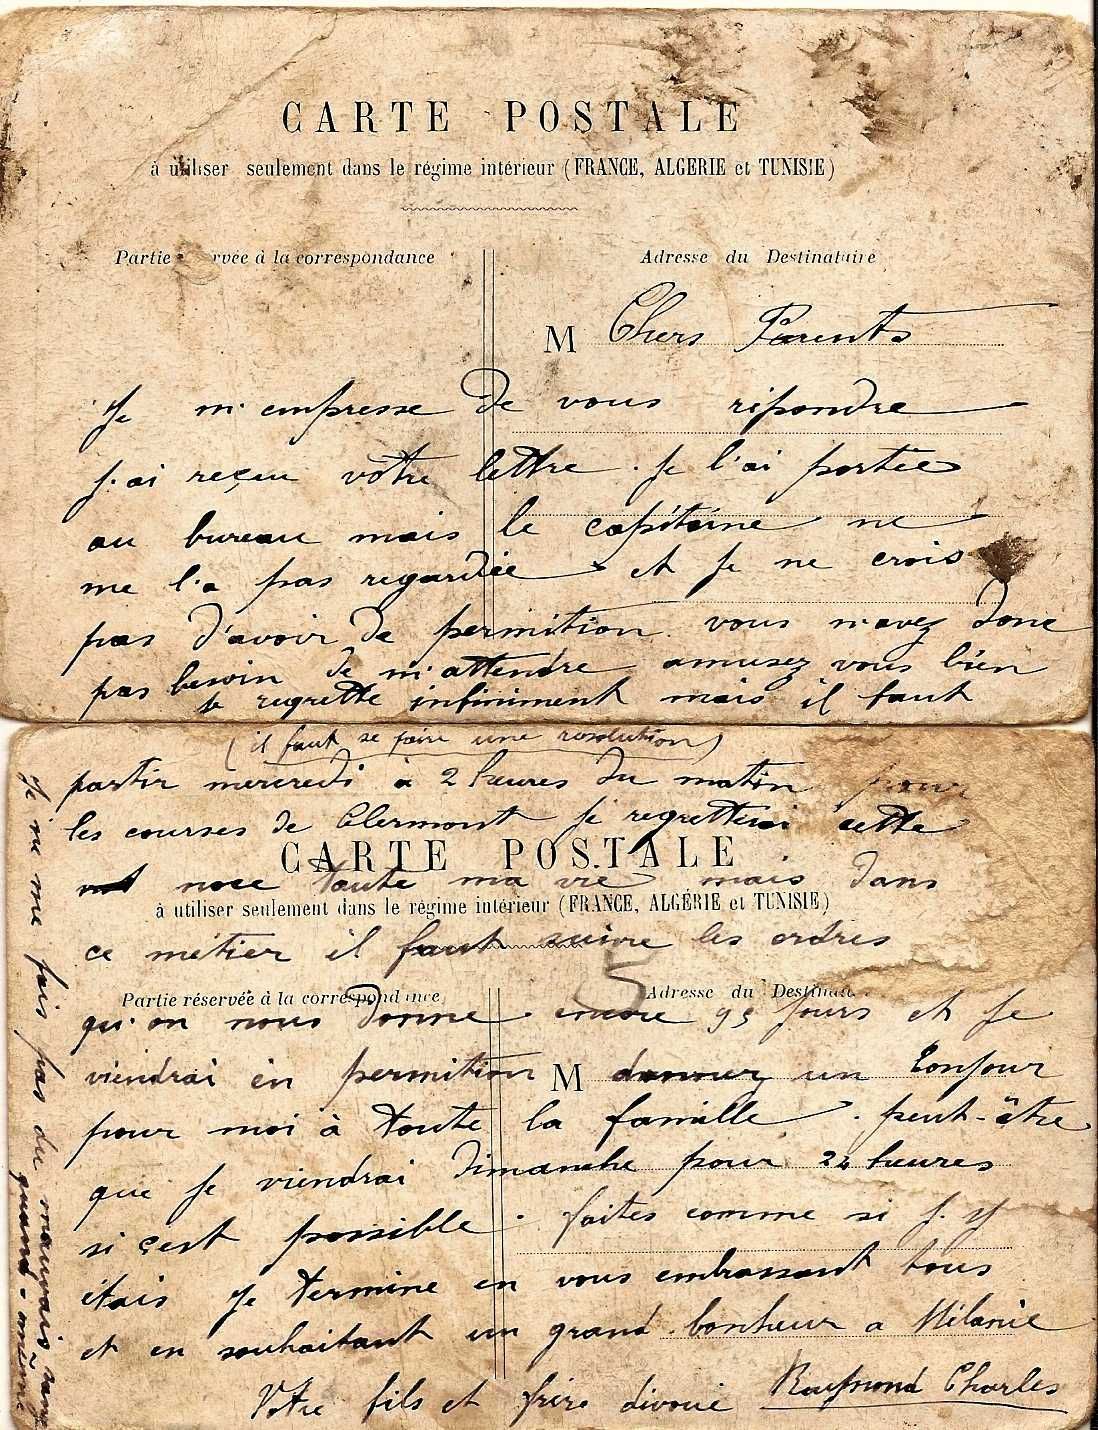 CARTE POSTALE
à utiliser seulement dans le régime intérieur (FRANCE, ALGERIE et TUNISIE)
Partie rvée à la correspondance
Adresse du Destinataire
M Chers Parents
Je m'empresse de vous répondre
j'ai reçeu votre lettre. je l'ai portée
au bureau mais le capitaine ne
me l'a pas regardée et je ne crois
pas d'avoir de permition. vous m'avez donc
pas besoin de m'attendre amusez vous bien
je regrette infiniment mais il faut
(il faut se faire une resolution)
partir mercredi à 2 heures du matin pour
les courses de Clermont je regretterai cette
CARTE POSTALE
noce toute ma vie mais dans
à utiliser seulement dans le régime intérieur (FRANCE, ALGÉRIE et TUNISIE)
ce métier il faut suivre les ordres
Partie réservée à la correspondance
Adresse du Destinat
qu'on nous donne. encore 95 jours et je
viendrai en permition M donnez un bonjour
pour moi à toute la famille. peut-être
que je viendrai Dimanche pour 24 heures
si çest possible. faites comme si j'y
étais Je termine en vous embrassant tous
et en souhaitant un grand bonheur a Mélanie
Votre fils et frère dévoué Raymond Charles
Je ne me fais pas du mauvais sang
quand-même